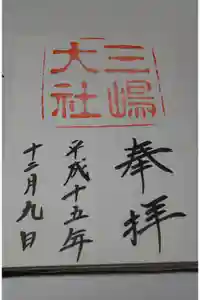 三嶋
大社
奉拝
平成十五年
十二月九日